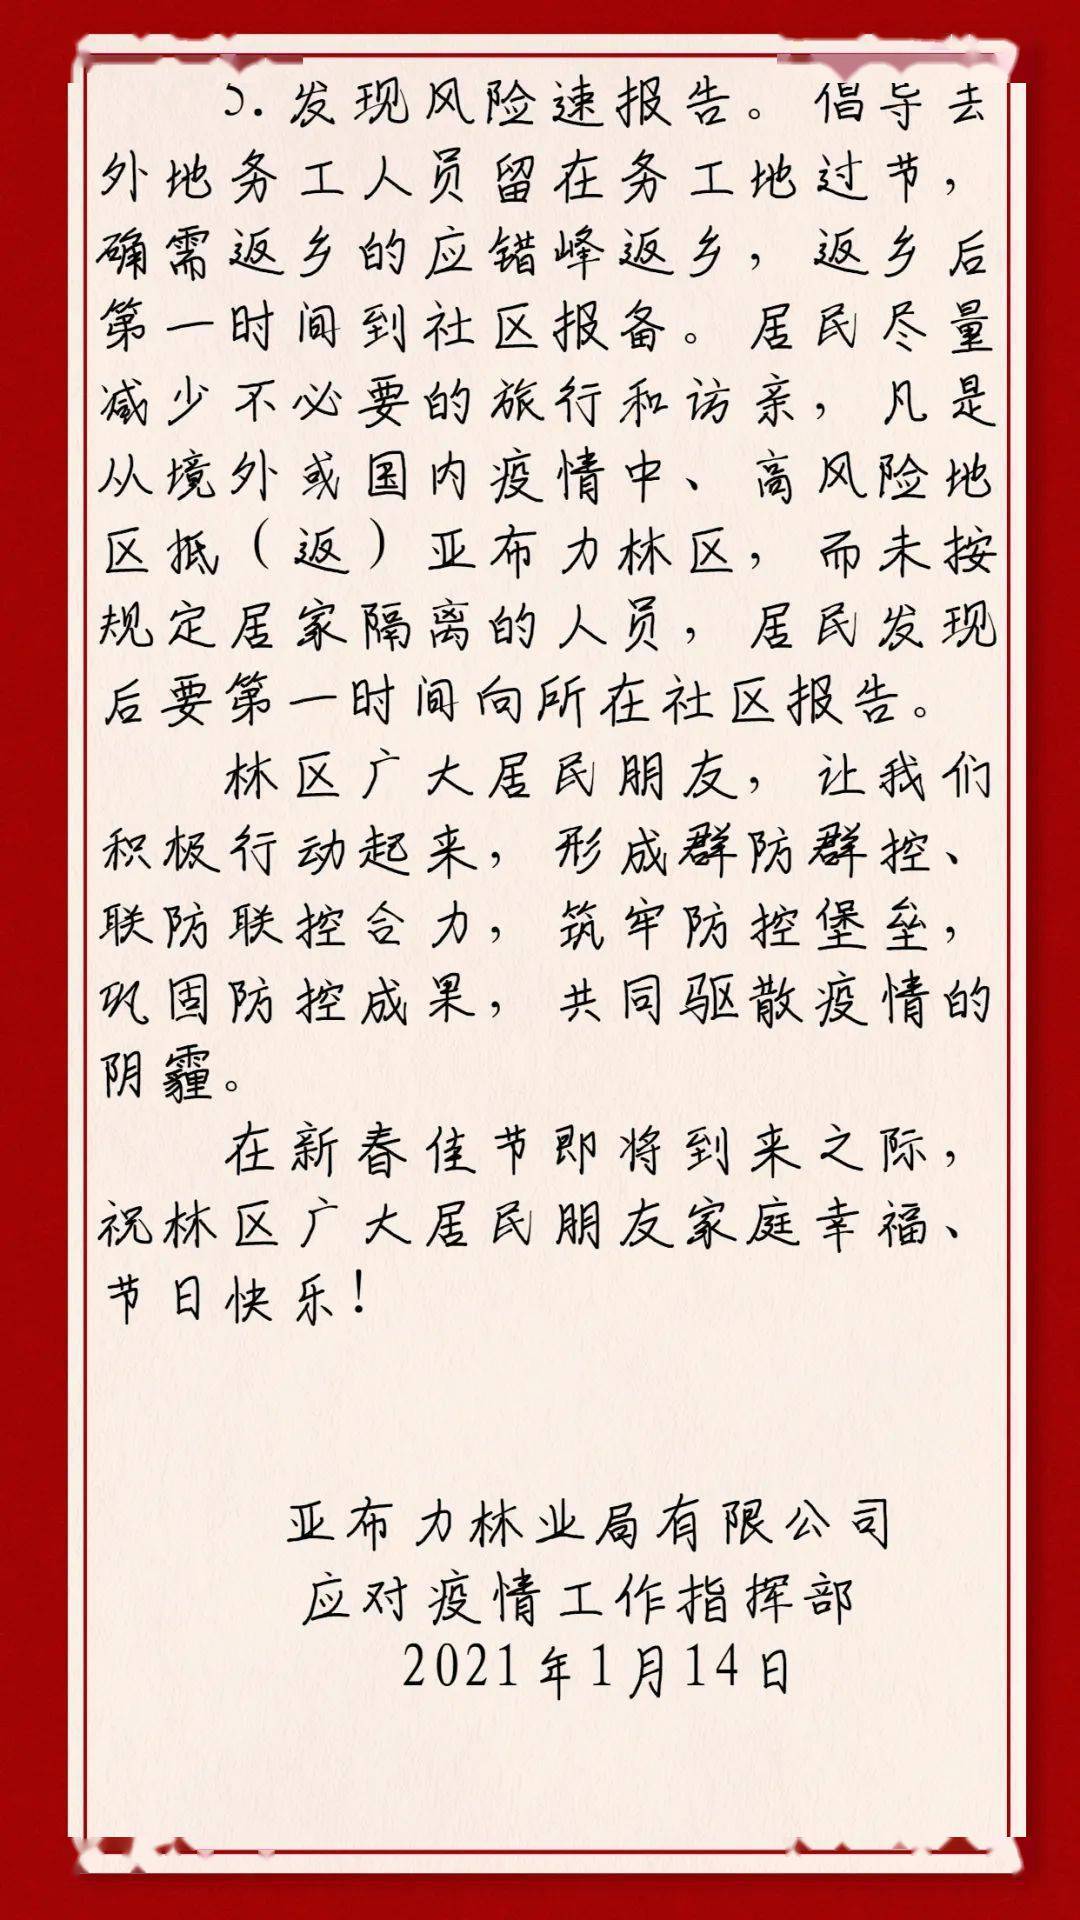 5.发现风险速报告。倡导去
外地务工人员留在务工地过节，
确需返乡的应错峰返乡，返乡后
第一时间到社区报备。居民尽量
减少不必要的旅行和访亲，凡是
从境外或国内疫情中、高风险地
区抵（返）亚布力林区，而未按
规定居家隔离的人员，居民发现
后要第一时间向所在社区报告。
林区广大居民朋友，让我们
积极行动起来，形成群防群控、
联防联控合力，筑牢防控堡垒，
巩固防控成果，共同驱散疫情的
阴霾。
在新春佳节即将到来之际，
祝林区广大居民朋友家庭幸福、
节日快乐！
亚布力林业局有限公司
应对疫情工作指挥部
2021年1月14日